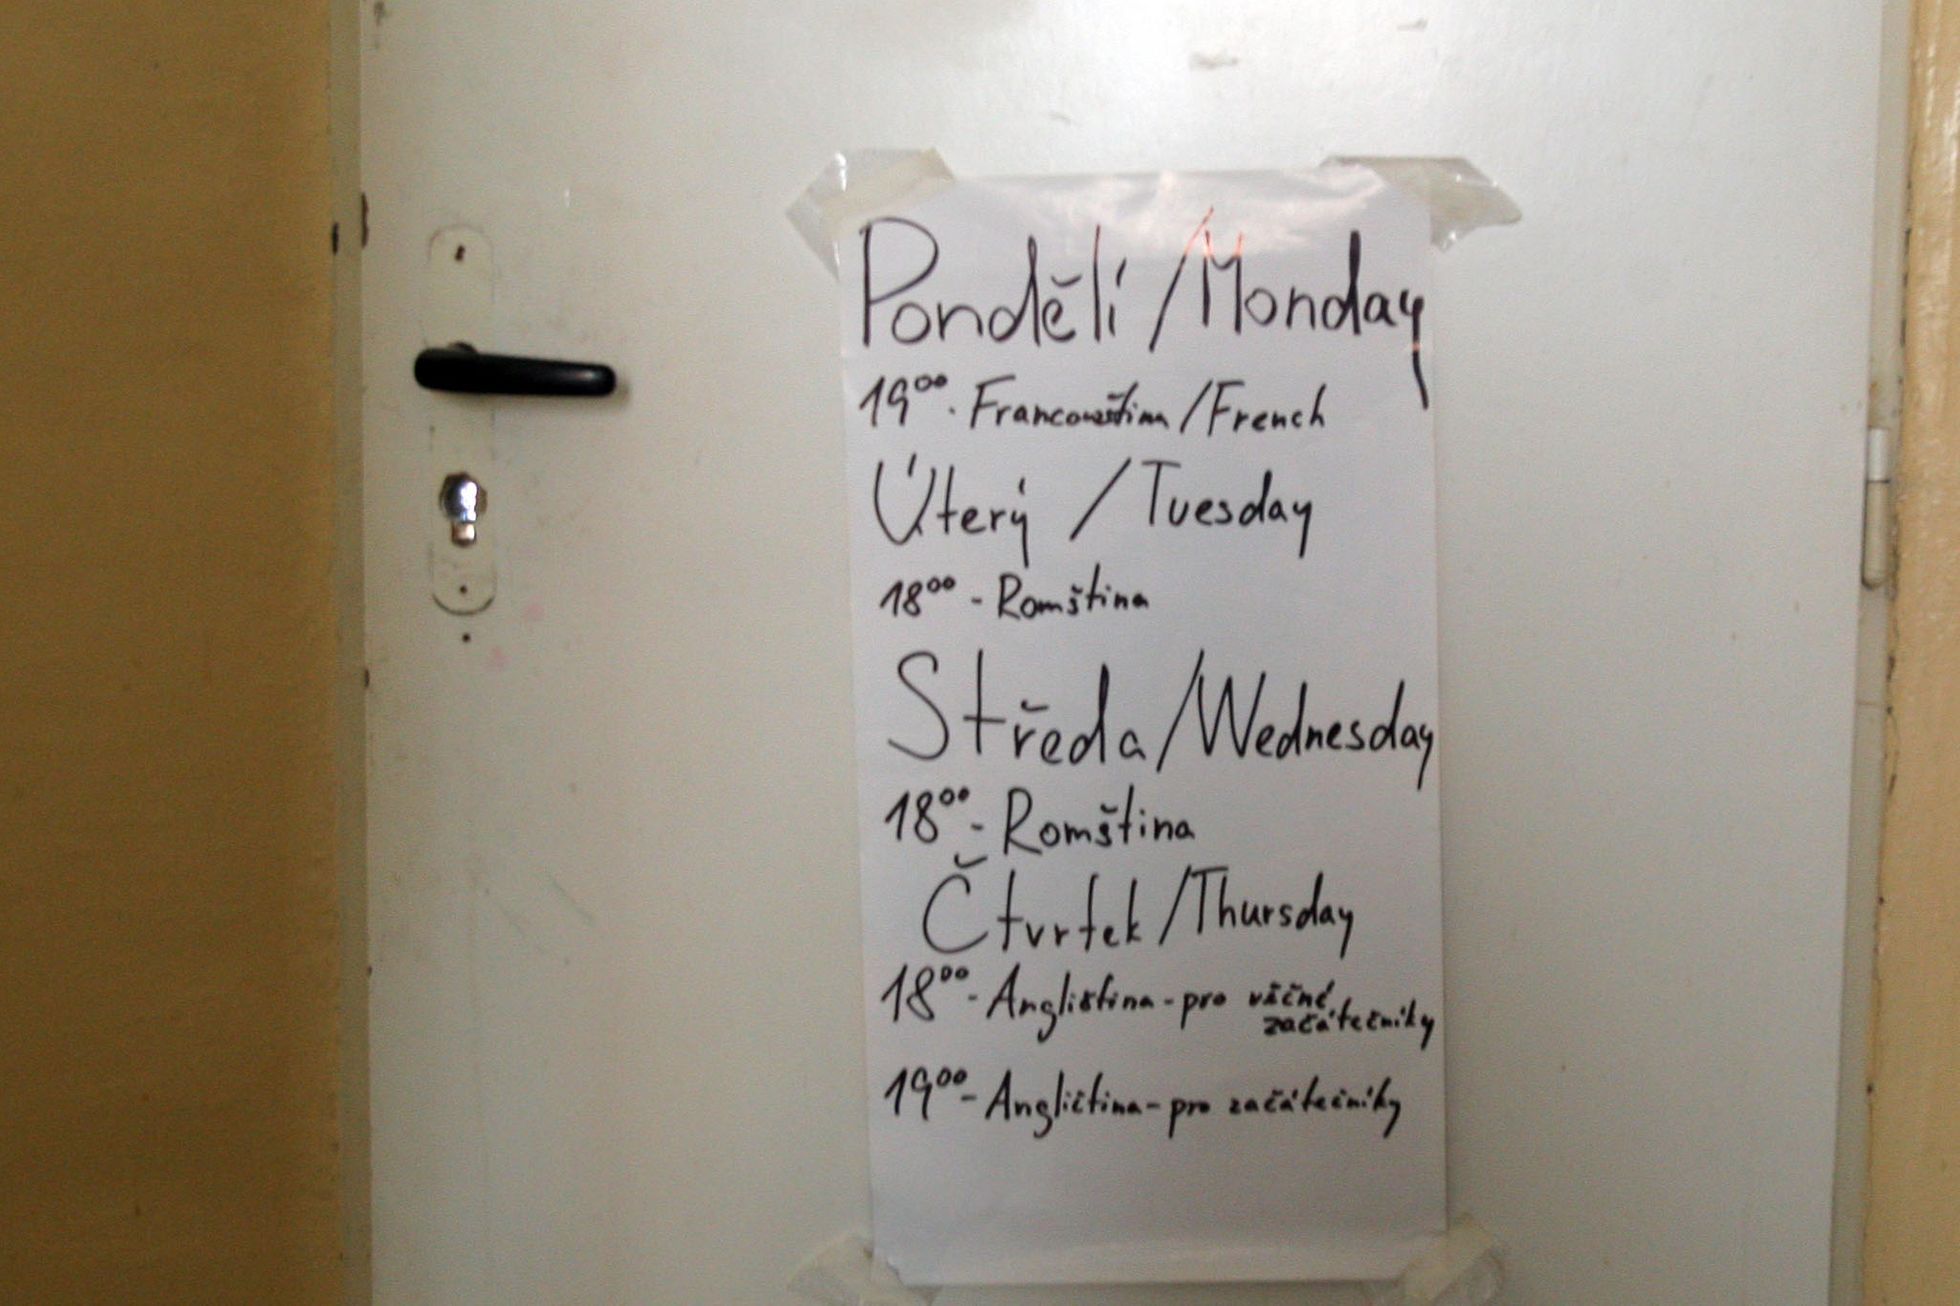 Pondělí / Monday
19⁰⁰ - Francouzština / French
Úterý / Tuesday
18⁰⁰ - Romština
Středa / Wednesday
18⁰⁰ - Romština
Čtvrtek / Thursday
18⁰⁰ - Angličtina - pro věčné
začátečníky
19⁰⁰ - Angličtina - pro začátečníky